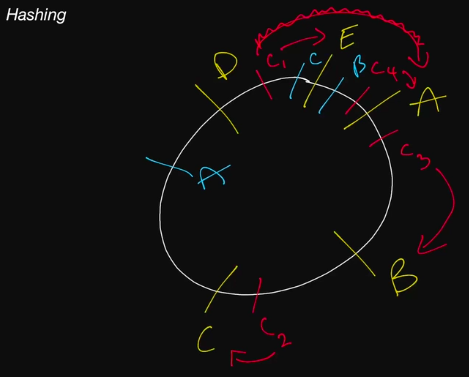 Hashing
E
D
C1
C
B
C4
A
C3
A
B
C2
C